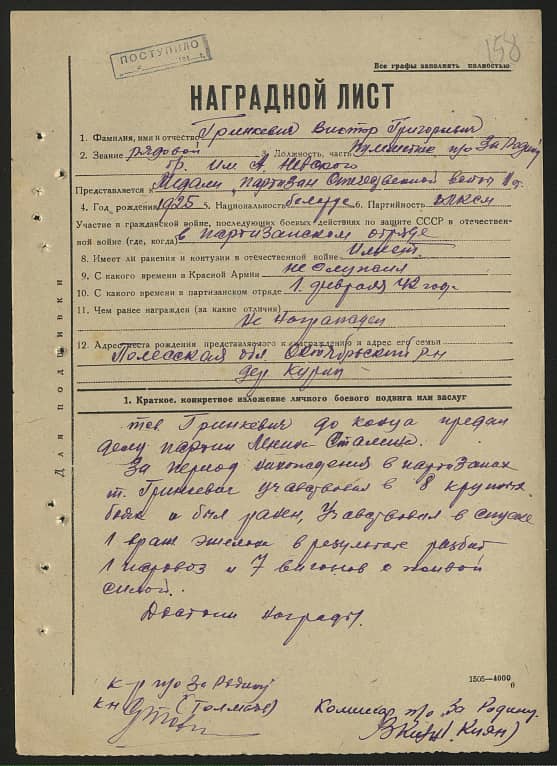 158
ПОСТУПИЛО
Все графы заполнять полностью
НАГРАДНОЙ ЛИСТ
1. Фамилия, имя и отчество Гринкевич Виктор Григорьевич
2. Звание рядовой 3. Должность, часть п/о За Родину
бр. им А. Невского
Представляется к Медали "Партизан Отечественной войны" II ст.
4. Год рождения 1925 5. Национальность белорус 6. Партийность ВЛКСМ
Участие в гражданской войне, последующих боевых действиях по защите СССР в отечествен-
ной войне (где, когда) в партизанском отряде
8. Имеет ли ранения и контузии в отечественной войне Имеет.
9. С какого времени в Красной Армии не служил
10. С какого времени в партизанском отряде 1 февраля 42 год.
11. Чем ранее награжден (за какие отличия)
Не награжден
12. Адрес места рождения представляемого к награждению и адрес его семьи
Полесская обл Октябрьский р-н
дер. Курин
Для подшивки
1. Краткое, конкретное изложение личного боевого подвига или заслуг
тов Гринкевич до конца предан
делу партии Ленина-Сталина.
За период нахождения в партизанах
т. Гринкевич учавствовал в 8 крупных
боях и был ранен, Учавствовал в спуске
1 враж эшелона в результате разбит
1 паровоз и 7 вагонов с живой
силой.
Достоин награды.
1505—4000
к-р п/о За Родину
к-н (Толмачев)
Комиссар п/о За Родину
(Киян)